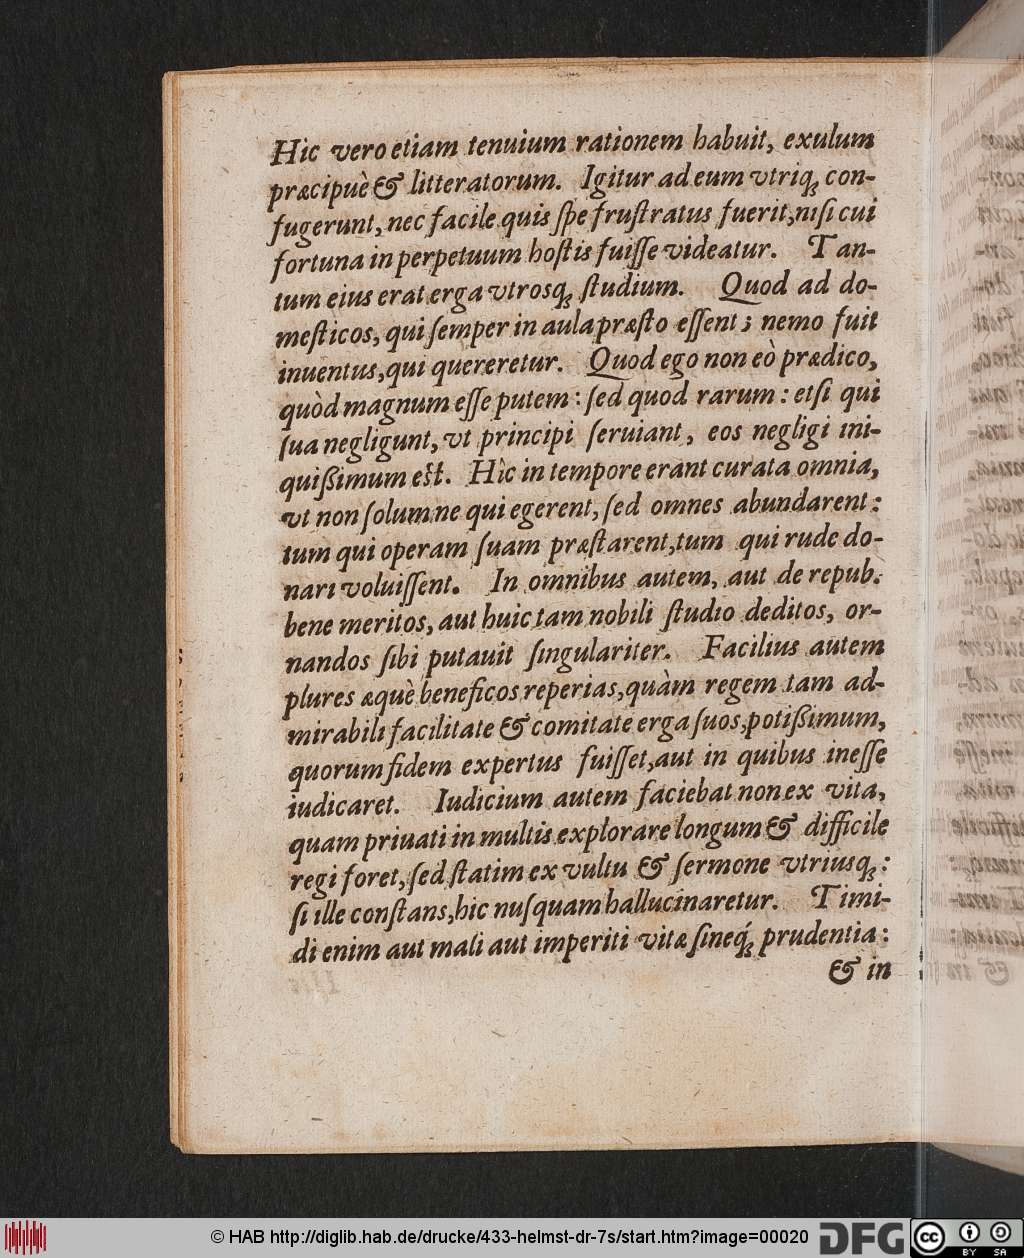 Hic vero etiam tenuium rationem habuit, exulum
præcipuè & litteratorum. Igitur ad eum vtriq; con-
fugerunt, nec facile quis ſpe fruſtratus fuerit, niſi cui
fortuna in perpetuum hoſtis fuiſſe videatur. Tan-
tum eius erat erga vtrosq; ſtudium. Quod ad do-
meſticos, qui ſemper in aula præſto eſſent; nemo fuit
inuentus, qui quereretur. Quod ego non eò prædico,
quòd magnum eſſe putem: ſed quod rarum: etſi qui
ſua negligunt, vt principi ſeruiant, eos negligi ini-
quißimum eſt. Hìc in tempore erant curata omnia,
vt non ſolum ne qui egerent, ſed omnes abundarent:
tum qui operam ſuam præſtarent, tum qui rude do-
nari voluiſſent. In omnibus autem, aut de repub.
bene meritos, aut huic tam nobili ſtudio deditos, or-
nandos ſibi putauit ſingulariter. Facilius autem
plures æquè beneficos reperias, quàm regem tam ad-
mirabili facilitate & comitate erga ſuos, potißimum,
quorum fidem expertus fuiſſet, aut in quibus ineſſe
iudicaret. Iudicium autem faciebat non ex vita,
quam priuati in multis explorare longum & difficile
regi foret, ſed ſtatim ex vultu & ſermone vtriusq;:
ſi ille conſtans, hic nuſquam hallucinaretur. Timi-
di enim aut mali aut imperiti vitæ ſineq́; prudentia:
& in
© HAB http://diglib.hab.de/drucke/433-helmst-dr-7s/start.htm?image=00020
DFG
cc
BY SA